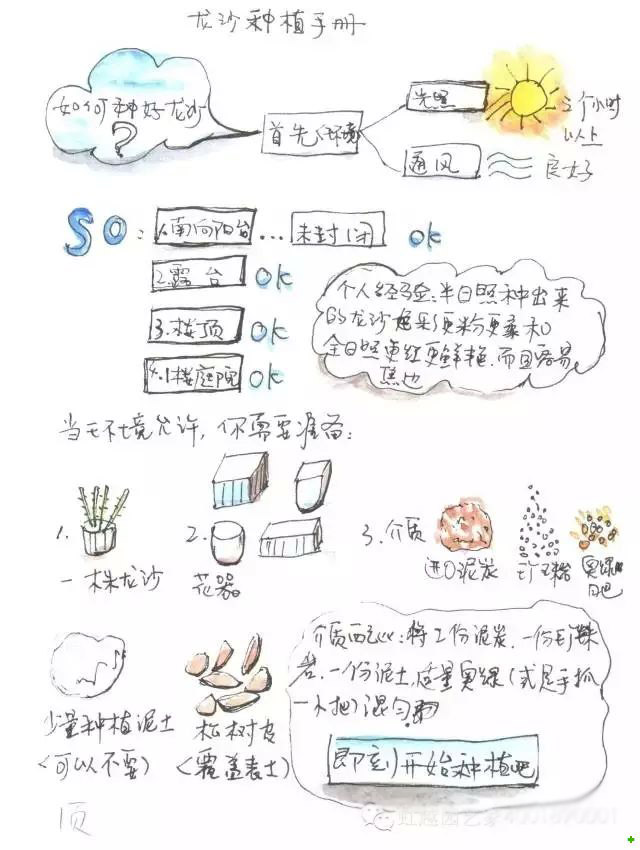 龙沙种植手册
如何种好龙沙
?
首先环境
光照
三个小时
以上
通风
良好
SO:
1.南向阳台...未封闭 OK
2.露台 OK
3.楼顶 OK
4.1楼庭院 OK
个人经验:半日照种出来
的龙沙 更粉更柔和
全日照更红更鲜艳.而且容易
焦边
当环境允许,你需要准备:
1.
一株龙沙
2.
花器
3.介质
进口泥炭
珍珠岩
奥绿
肥
少量种植泥土
<可以不要>
松树皮
<覆盖表土>
介质配比:将2份泥炭.一份珍珠
岩.一份泥土.适量奥绿(或是手抓
一小把)混匀
即刻开始种植吧
顶
虹越园艺家4001870001